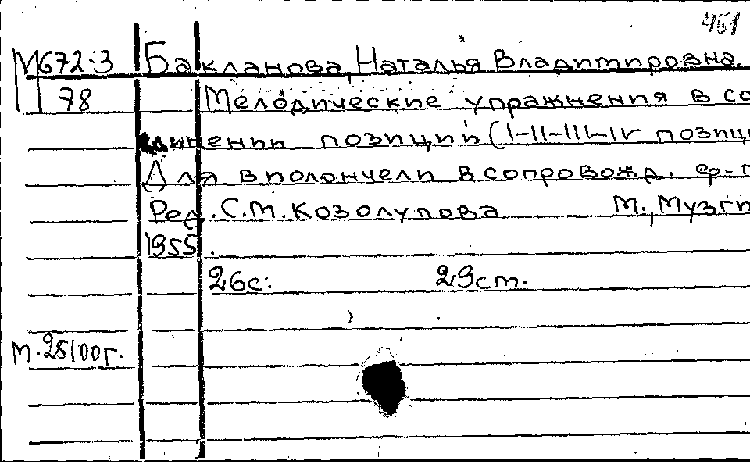 461
М672:3 Бакланова, Наталья Владимировна.
78 Мелодические упражнения в со
единении позиций (I-II-III-IV позиц
Для виолончели в сопровожд. ф-п
Ред. С.М. Козолупова М., Музги
1955.
26с. 29см.
М.28100г.